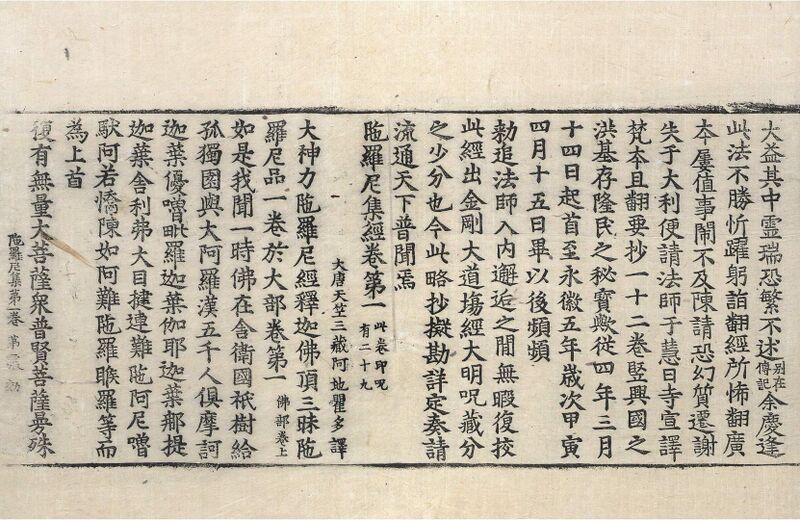 大益其中靈瑞恐繁不述別在傳記余慶逢
此法不勝忻躍躬詣翻經所悕翻廣
夲屢值事閙不及陳請恐幻質遷謝
失于大利便請法師于慧日寺宣譯
梵夲且翻要抄一十二卷竪興國之
洪基存隆民之秘寶歟從四年三月
十四日起首至永徽五年歲次甲寅
四月十五日畢以後頻頻
勅追法師入內邂逅之閒無暇復挍
此經出金剛大道塲經大明呪藏分
之少分也今此略抄擬勘詳定奏請
流通天下普聞焉
陁羅尼集經卷第一 此卷印呪有二十九
大唐天竺三藏阿地瞿多譯
大神力陁羅尼經釋迦佛頂三昧陁
羅尼品一卷於大部卷第一 佛部卷上
如是我聞一時佛在舍衛國祇樹給
孤獨園與大阿羅漢五千人俱摩訶
迦葉優嚕毗羅迦葉伽耶迦葉那提
迦葉舍利弗大目揵連難陁阿尼嚕
馱阿若憍陳如阿難陁羅睺羅等而
為上首
陁羅尼集第一卷 第二張 効
復有無量大菩薩衆普賢菩薩曼殊